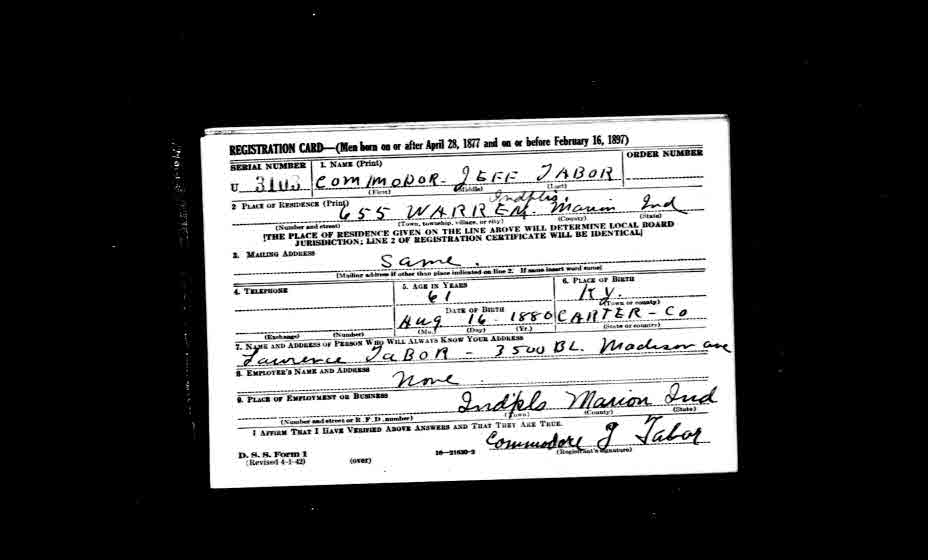 REGISTRATION CARD—(Men born on or after April 28, 1877 and on or before February 16, 1897)
SERIAL NUMBER 1. NAME (Print) ORDER NUMBER
U 3103 COMMODOR- JEFF TABOR
(First) (Middle) (Last)
2 PLACE OF RESIDENCE (Print) Indpls.
655 WARREN. Marion Ind
(Number and street) (Town, township, village, or city) (County) (State)
[THE PLACE OF RESIDENCE GIVEN ON THE LINE ABOVE WILL DETERMINE LOCAL BOARD
JURISDICTION; LINE 2 OF REGISTRATION CERTIFICATE WILL BE IDENTICAL]
3. MAILING ADDRESS
Same.
[Mailing address if other than place indicated on line 2. If same insert word same]
4. TELEPHONE 5. AGE IN YEARS 6. PLACE OF BIRTH
61 Ky.
DATE OF BIRTH (Town or county)
Aug 16 - 1880 CARTER-Co
(Exchange) (Number) (Mo.) (Day) (Yr.) (State or country)
7. NAME AND ADDRESS OF PERSON WHO WILL ALWAYS KNOW YOUR ADDRESS
Lawrence TABOR - 3500 BL. Madison ave
8. EMPLOYER'S NAME AND ADDRESS
None.
9. PLACE OF EMPLOYMENT OR BUSINESS
Ind'pls Marion Ind
(Number and street or R. F. D. number) (Town) (County) (State)
I AFFIRM THAT I HAVE VERIFIED ABOVE ANSWERS AND THAT THEY ARE TRUE.
Commodore J Tabor
D. S. S. Form 1 16—21630-2 (Registrant's signature)
(Revised 4-1-42) (over)